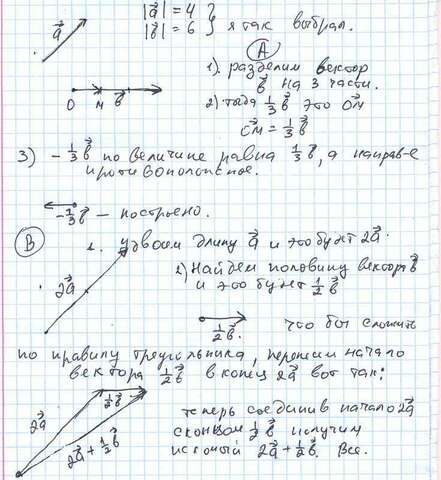 a⃗ |a⃗| = 4
|b⃗| = 6 } я так выбрал.
А
1). разделим вектор
b⃗ на 3 части.
O M b⃗
2) тогда 1/3 b⃗ это OM⃗
OM⃗ = 1/3 b⃗
3) - 1/3 b⃗ по величине равна 1/3 b⃗, а направ-е
противополож​ное.
-1/3 b⃗ – построено.
В
1. удвоем длину a⃗ и это будет 2a⃗.
2a⃗
2) Найдем половину вектора b⃗
и это будет 1/2 b⃗
1/2 b⃗.
что бы сложить
по правилу треугольника, перенесем начало
вектора 1/2 b⃗ в конец 2a⃗ вот так:
1/2 b⃗
2a⃗
2a⃗ + 1/2 b⃗
теперь соединив начало 2a⃗
с концом 1/2 b⃗ получим
искомый 2a⃗ + 1/2 b⃗. Все.